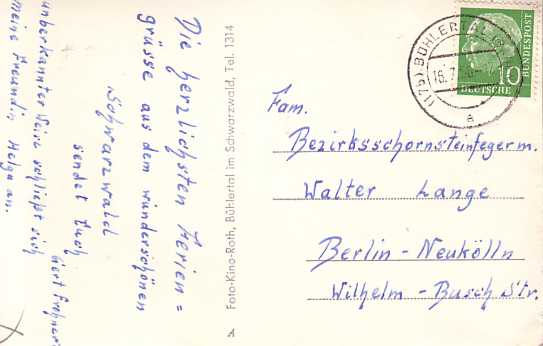 Die herzlichsten Ferien=
grüsse aus dem wunderschönen
Schwarzwald
sendet Euch
Gert
unberkannter Weise schließt sich
meine Freundin Helga an.
Foto-Kino-Roth, Bühlertal im Schwarzwald, Tel. 1314
A
(17b) BÜHLERTAL
18.7.
a
10
DEUTSCHE
BUNDESPOST
Fam.
Bezirksschornsteinfegerm.
Walter Lange
Berlin-Neukölln
Wilhelm-Busch Str.